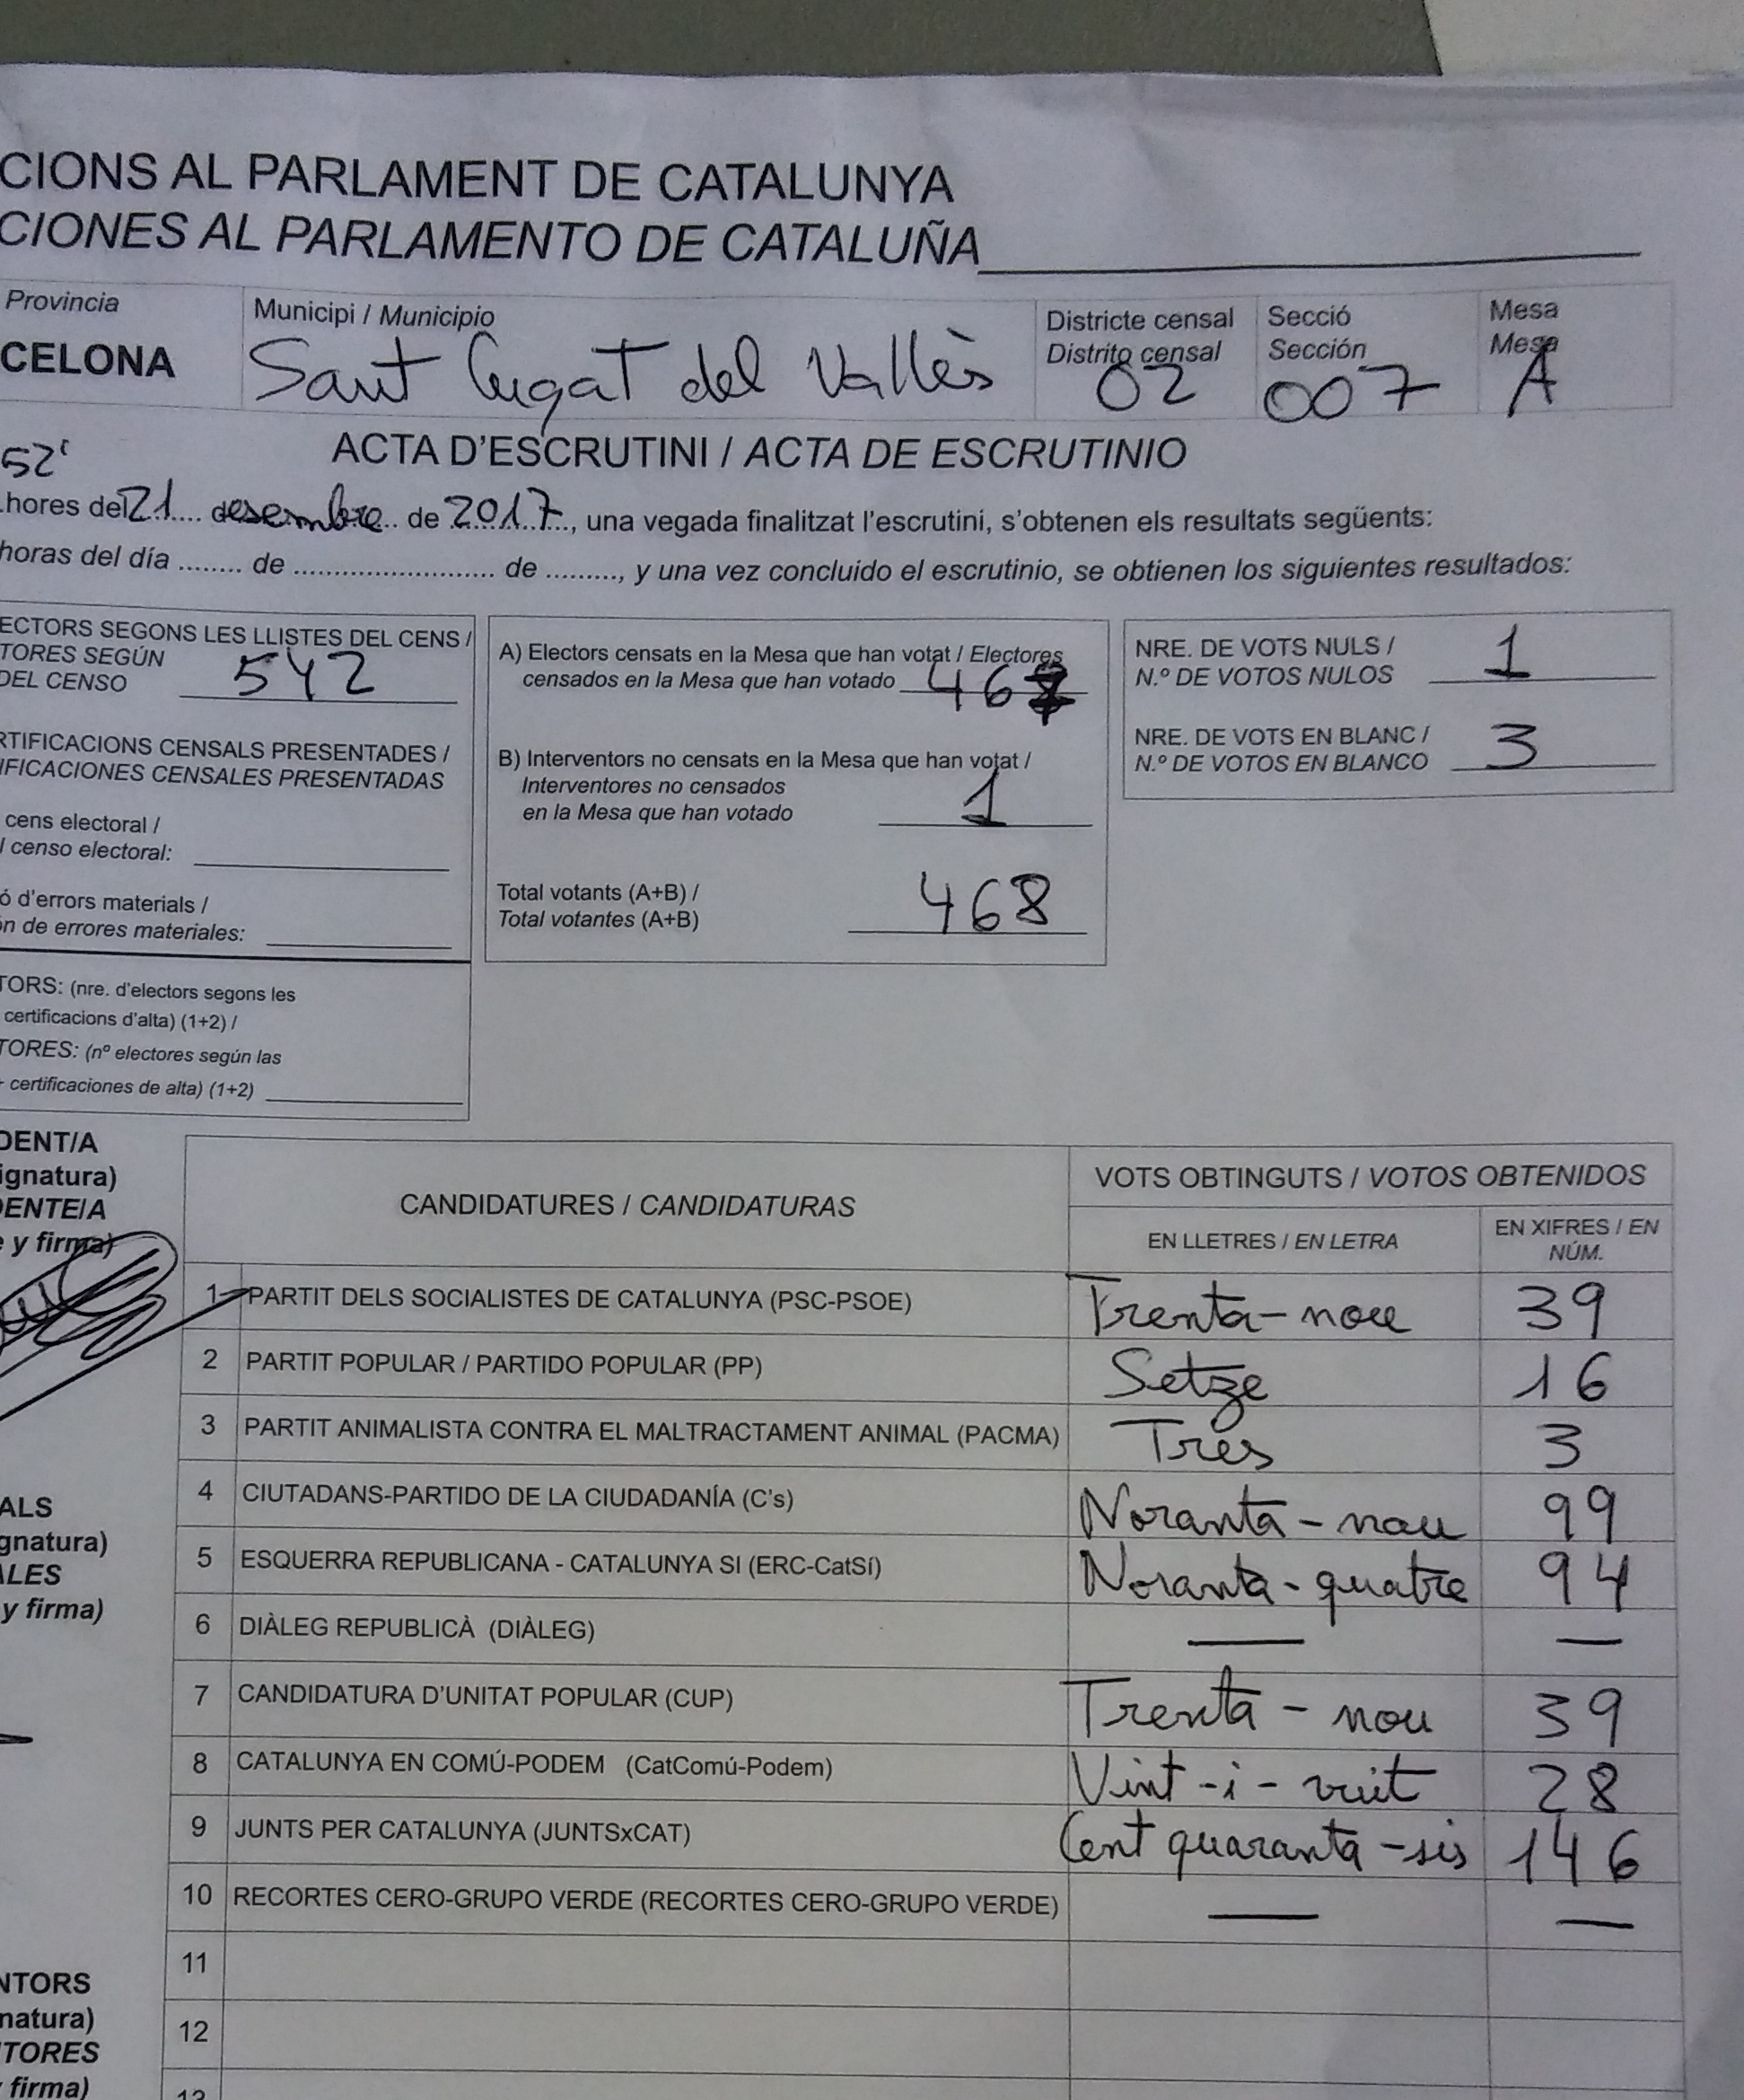 CIONS AL PARLAMENT DE CATALUNYA
CIONES AL PARLAMENTO DE CATALUÑA
Provincia
CELONA
Municipi / Municipio
Sant Cugat del Vallès
Districte censal
Distrito censal
02
Secció
Sección
007
Mesa
Mesa
A
ACTA D'ESCRUTINI / ACTA DE ESCRUTINIO
52'
hores del 21 de desembre de 2017, una vegada finalitzat l'escrutini, s'obtenen els resultats següents:
horas del día ........ de ............................ de .........., y una vez concluido el escrutinio, se obtienen los siguientes resultados:
ECTORS SEGONS LES LLISTES DEL CENS /
TORES SEGÚN
DEL CENSO
542
RTIFICACIONS CENSALS PRESENTADES /
IFICACIONES CENSALES PRESENTADAS
cens electoral /
l censo electoral:
ó d'errors materials /
ón de errores materiales:
TORS: (nre. d'electors segons les
certificacions d'alta) (1+2) /
TORES: (nº electores según las
certificaciones de alta) (1+2)
A) Electors censats en la Mesa que han votat / Electores
censados en la Mesa que han votado 467
B) Interventors no censats en la Mesa que han votat /
Interventores no censados
en la Mesa que han votado 1
Total votants (A+B) /
Total votantes (A+B) 468
NRE. DE VOTS NULS /
N.º DE VOTOS NULOS 1
NRE. DE VOTS EN BLANC /
N.º DE VOTOS EN BLANCO 3
DENT/A
ignatura)
DENTE/A
e y firma)
CANDIDATURES / CANDIDATURAS
VOTS OBTINGUTS / VOTOS OBTENIDOS
EN LLETRES / EN LETRA
EN XIFRES / EN
NÚM.
1 PARTIT DELS SOCIALISTES DE CATALUNYA (PSC-PSOE) Trenta-nou 39
2 PARTIT POPULAR / PARTIDO POPULAR (PP) Setze 16
3 PARTIT ANIMALISTA CONTRA EL MALTRACTAMENT ANIMAL (PACMA) Tres 3
4 CIUTADANS-PARTIDO DE LA CIUDADANÍA (C's) Noranta-nou 99
5 ESQUERRA REPUBLICANA - CATALUNYA SI (ERC-CatSí) Noranta-quatre 94
6 DIÀLEG REPUBLICÀ (DIÀLEG) — —
7 CANDIDATURA D'UNITAT POPULAR (CUP) Trenta-nou 39
8 CATALUNYA EN COMÚ-PODEM (CatComú-Podem) Vint-i-vuit 28
9 JUNTS PER CATALUNYA (JUNTSxCAT) Cent quaranta-sis 146
10 RECORTES CERO-GRUPO VERDE (RECORTES CERO-GRUPO VERDE) — —
11
12
ALS
gnatura)
ALES
y firma)
NTORS
natura)
TORES
firma)